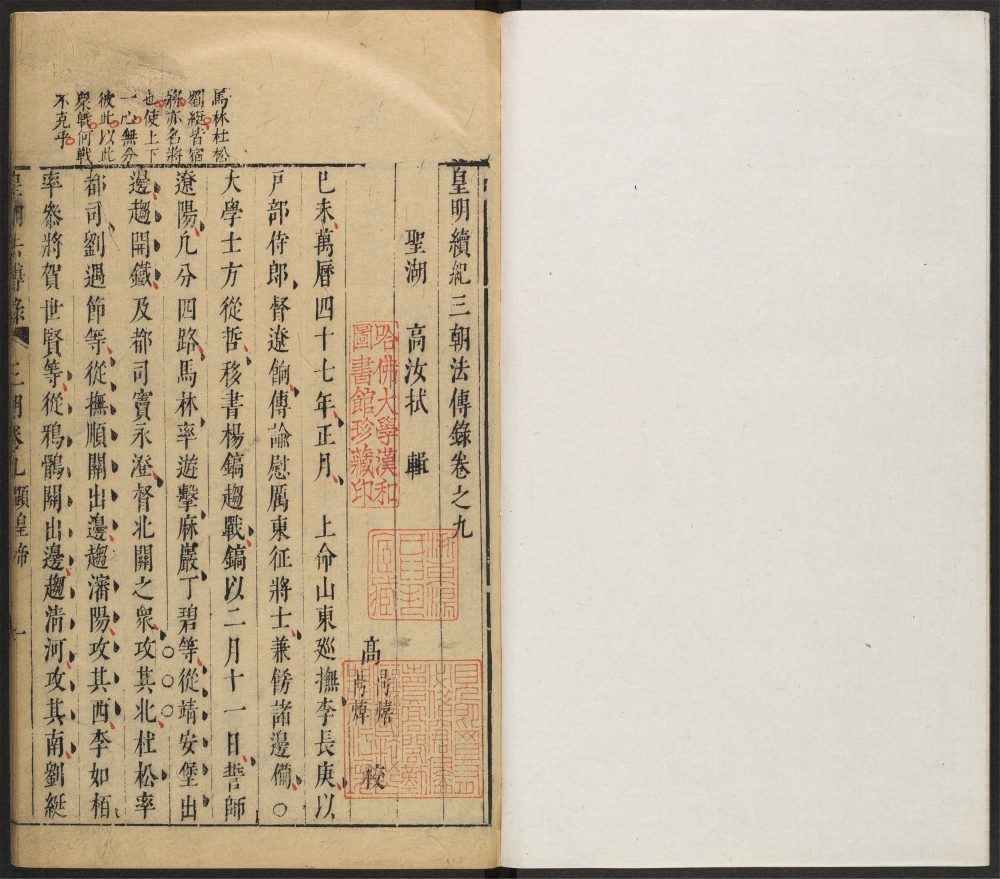 皇明續紀三朝法傳錄卷之九
聖湖 高汝栻 輯
高 校
己未萬曆四十七年正月 上命山東廵撫李長庚以
戶部侍郎督遼餉傳諭慰厲東征將士兼餙諸邊備○
大學士方從哲移書楊鎬趨戰鎬以二月十一日誓師
遼陽凡分四路馬林率遊擊麻巖丁碧等從靖安堡出
邊趨開鐵及都司竇永澄督北關之衆攻其北杜松率
都司劉遇節等從撫順關出邊趨瀋陽攻其西李如栢
率叅將賀世賢等從鴉鶻關出邊趨清河攻其南劉綎
馬林杜松
劉綎皆宿
將亦名將
也使上下
一心無分
彼此以此
衆戰何戰
不克乎
皇明法傳錄 三朝卷九 顯皇帝 一
哈佛大學漢和
圖書館珍藏印